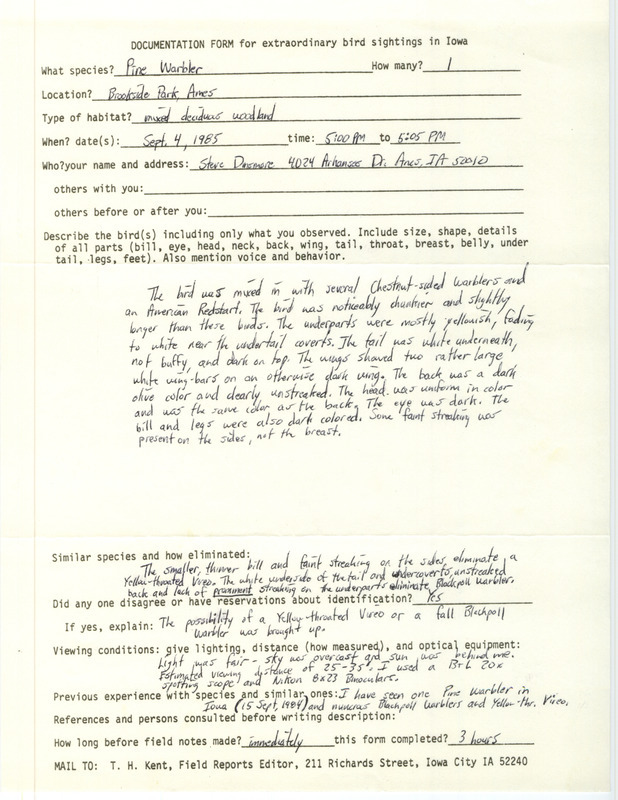 DOCUMENTATION FORM for extraordinary bird sightings in Iowa
What species? Pine Warbler How many? 1
Location? Brookside Park, Ames
Type of habitat? mixed deciduous woodland
When? date(s): Sept. 4, 1985 time: 5:00 PM to 5:05 PM
Who?your name and address: Steve Dinsmore 4024 Arkansas Dr. Ames, IA 50010
others with you:
others before or after you:
Describe the bird(s) including only what you observed. Include size, shape, details
of all parts (bill, eye, head, neck, back, wing, tail, throat, breast, belly, under
tail, legs, feet). Also mention voice and behavior.
The bird was mixed in with several Chestnut-sided Warblers and
an American Redstart. The bird was noticeably chunkier and slightly
longer than these birds. The underparts were mostly yellowish, fading
to white near the undertail coverts. The tail was white underneath,
not buffy, and dark on top. The wings showed two rather large
white wing-bars on an otherwise dark wing. The back was a dark
olive color and clearly unstreaked. The head was uniform in color
and was the same color as the back. The eye was dark. The
bill and legs were also dark colored. Some faint streaking was
present on the sides, not the breast.
Similar species and how eliminated:
The smaller, thinner bill and faint streaking on the sides eliminate a
Yellow-throated Vireo. The white underside of the tail and undercoverts, unstreaked
back and lack of prominent streaking on the underparts eliminate Blackpoll Warbler.
Did any one disagree or have reservations about identification? Yes
If yes, explain: The possibility of a Yellow-throated Vireo or a fall Blackpoll
Warbler was brought up.
Viewing conditions: give lighting, distance (how measured), and optical equipment:
Light was fair - sky was overcast and sun was behind me.
Estimated viewing distance of 25-35'. I used a B+L 20x
spotting scope and Nikon 8x23 Binoculars.
Previous experience with species and similar ones: I have seen one Pine Warbler in
Iowa (15 Sept, 1984) and numerous Blackpoll Warblers and Yellow-thr. Vireo.
References and persons consulted before writing description:
How long before field notes made? immediately this form completed? 3 hours
MAIL TO: T. H. Kent, Field Reports Editor, 211 Richards Street, Iowa City IA 52240